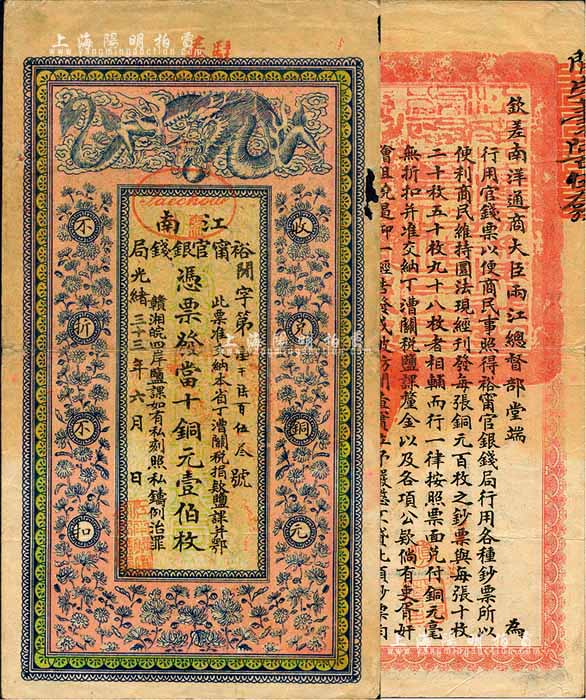 上海陽明拍賣
Taichow
江南
裕甯官銀錢局
開字第壹千陸百伍叁號
憑票發當十銅元壹伯枚
此票准完納本省丁漕關稅捐款鹽課并鄂
贛湘皖四岸鹽課如有私刻照私鑄例治罪
光緒三十三年六月　日
收兌銅元
不折不扣
上海陽明拍賣
欽差南洋通商大臣兩江總督部堂端　為
行用官錢票以便商民事照得裕甯官銀錢局行用各種鈔票所以
便利商民維持圜法現經刊發每張銅元百枚之鈔票與每張十枚
二十枚五十枚九十八枚者相輔而行一律按照票面兌付銅元毫
無折扣并准交納丁漕關稅鹽課釐金以及各項公欵倘有吏胥奸
上海陽明拍賣